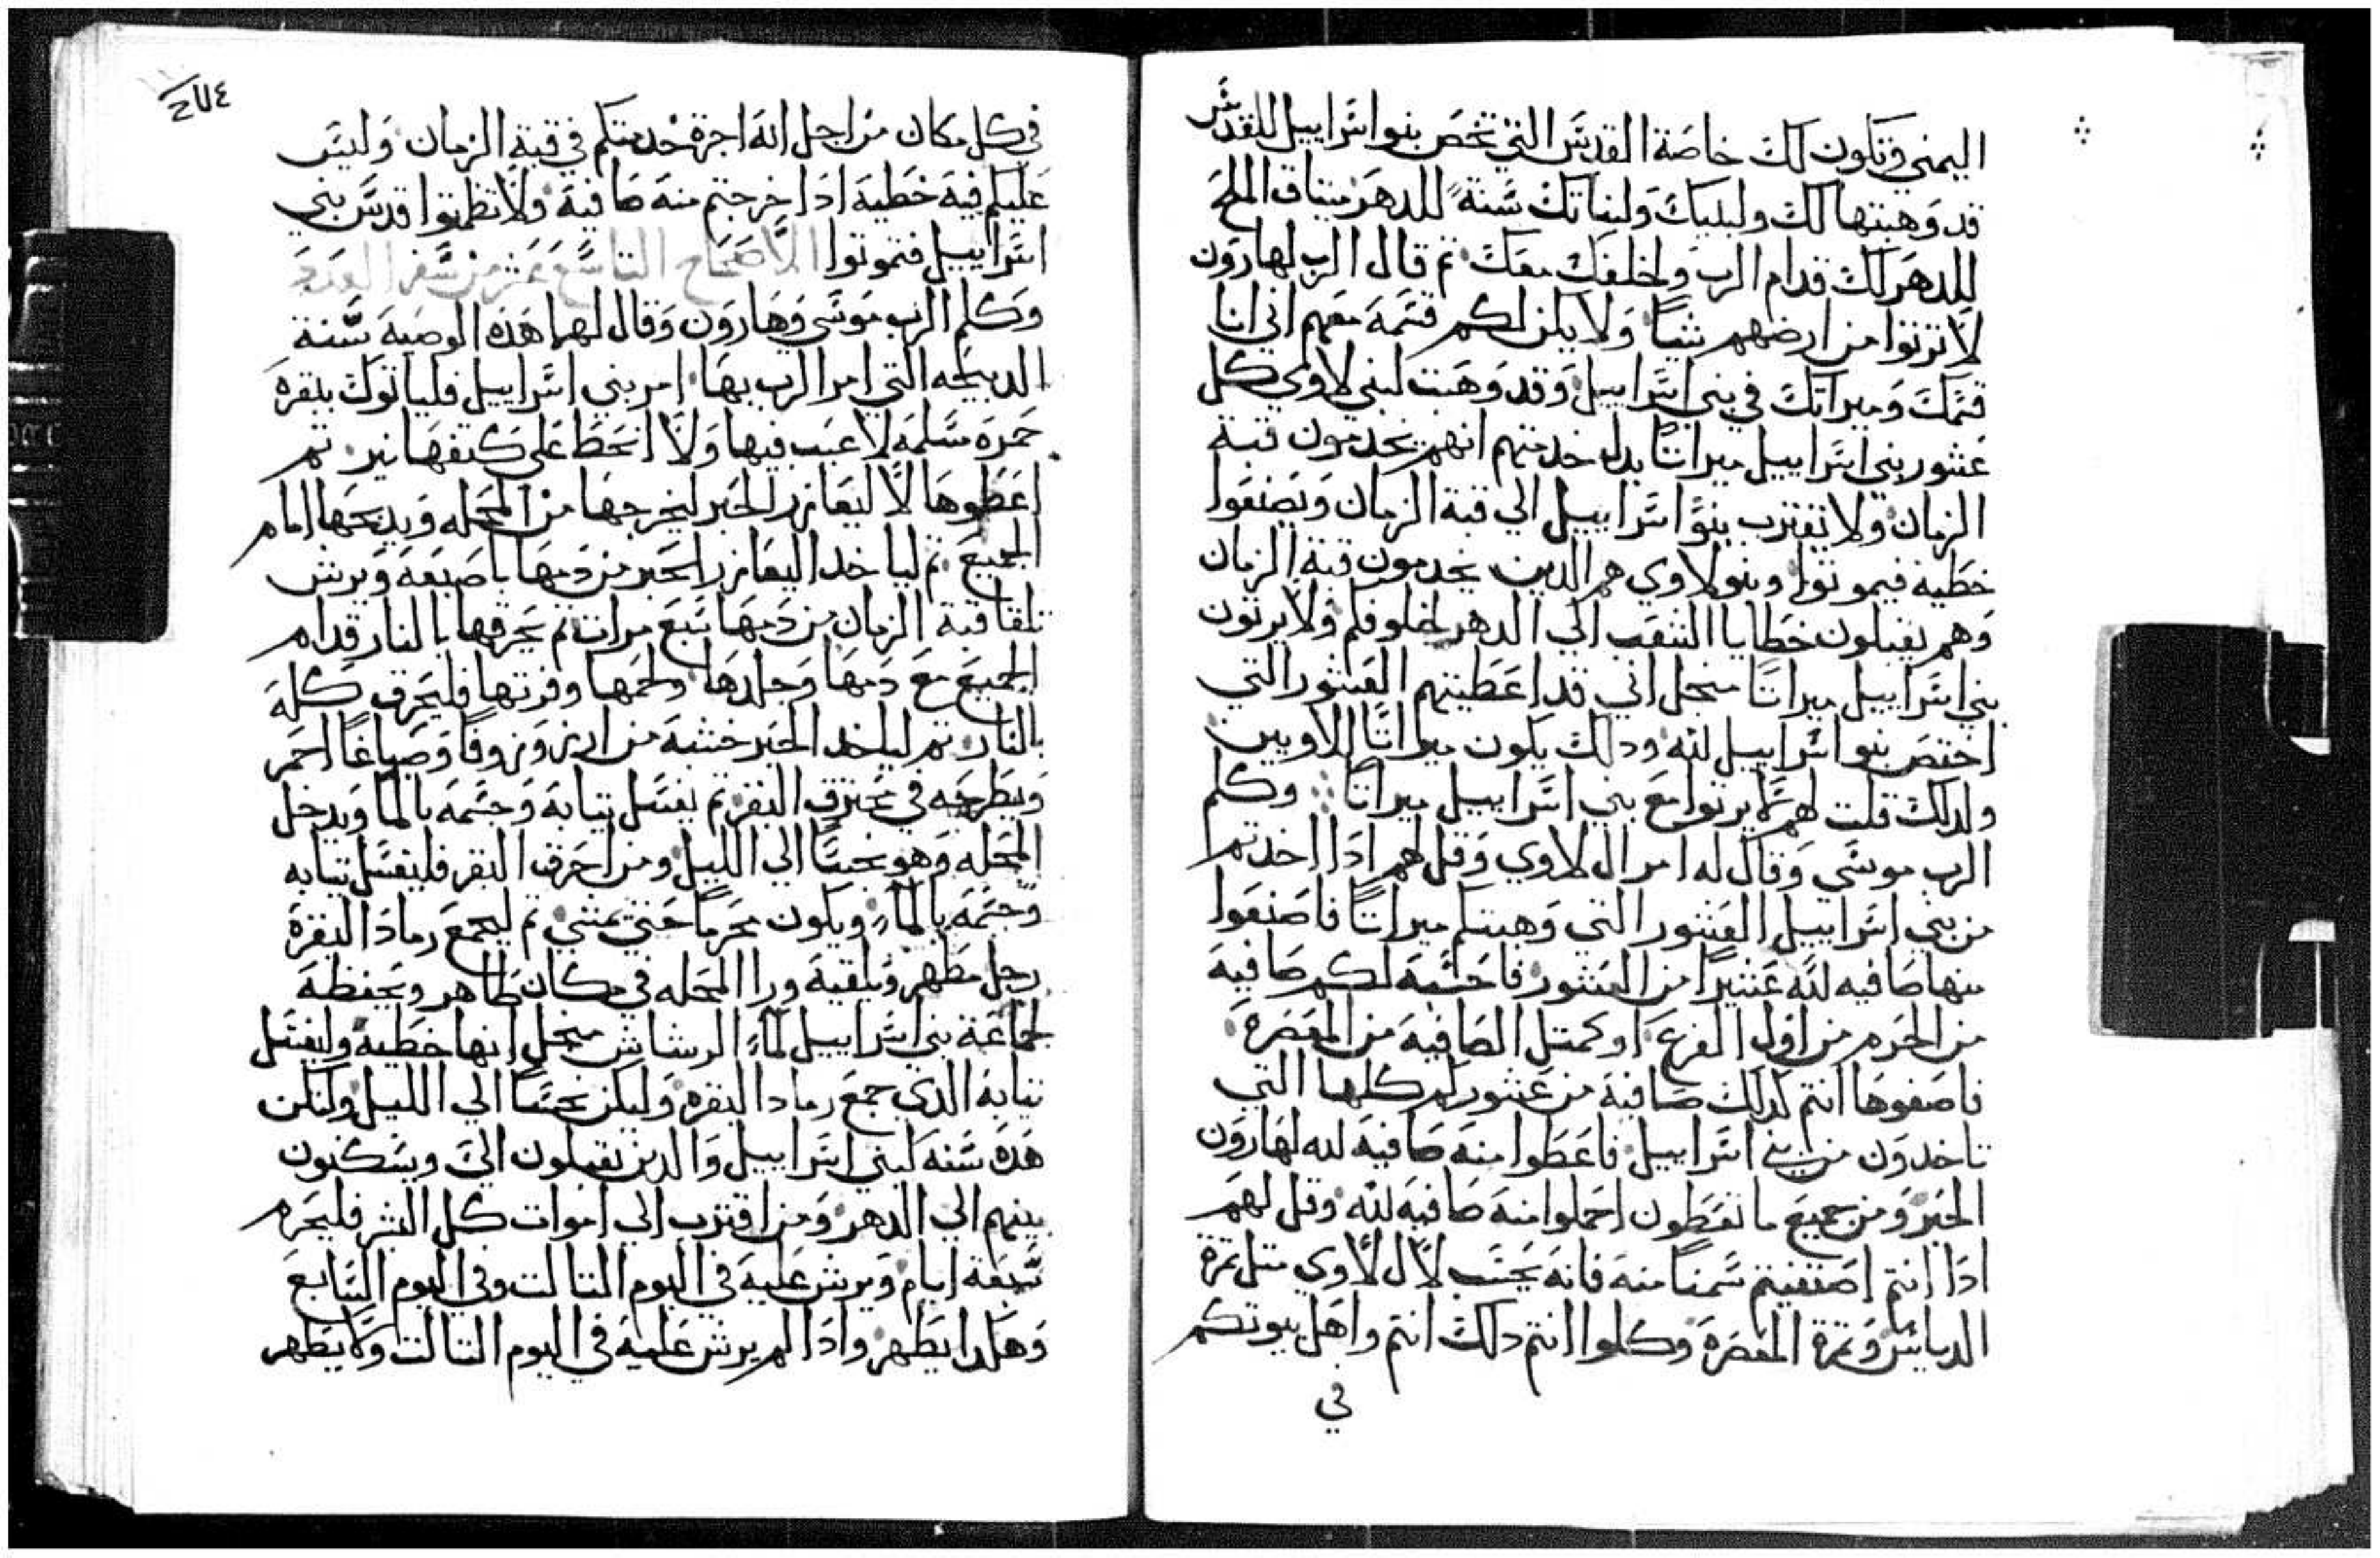 اليمني وتكون لك خاصة القدس التي تخص بنوا اسراييل للقدس
قد وهبتها لك ولبنيك ولبناتك سنة للدهر ميتاق الملح
للدهر لك قدام الرب ولخلفك معك تم قال الرب لهارون
لا ترتوا من ارضهم شياً ولا يكن لكم قسمة معهم اني انا
قسمك وميراتك في بني اسراييل وقد وهبت لبني لاوي كل
عشور بني اسراييل ميراتاً بدل خدمتهم انهم يخدمون قبة
الزمان ولا تقترب بنوا اسراييل الي قبة الزمان ويصنعوا
خطية فيموتوا وبنو لاوي هم الدين يخدمون قبة الزمان
وهم يقبلون خطايا الشعب الي الدهر لخلوفكم ولا يرتون
بني اسراييل ميراتاً منجل اني قد اعطيتهم العشور التي
اختص بنوا اسراييل لله ودلك يكون ميراتاً للاويين
ولدلك قلت لهم لا يرتوا مع بني اسراييل ميراتاً وكلم
الرب موسي وقال له امر ال لاوي وقل لهم ادا اخدتم
من بني اسراييل العشور التي وهبتكم ميراتاً فاصنعوا
منها صافيه لله عشيراً من العشور فاحسبه لكم صافية
من الجرم من اول الفرع او كمتل الصافية من المعصرة
فاصفوها انتم لدلك صافية من عشوركم كلها التي
تاخدون من بني اسراييل فاعطوا منه صافية لله لهارون
الحبر ومن جميع ما تعطون احملوا منه صافية لله وقل لهم
ادا انتم اصتفيتم سمناً منه فانه يحسب لال لاوي متل تمرة
الدياس وتمرة المعصرة وكلوا انتم دلك انتم واهل بيوتكم
في
٢٧٤
في كل مكان من اجل انه اجرة خدمتكم في قبة الزمان وليس
عليكم فيه خطية ادا اخرجتم منه صافية ولا تطمتوا قدس بني
اسراييل فتموتوا الاصحاح التاسع عشر من سفر العدد
وكلم الرب موسي وهارون وقال لهما هده الوصية سنة
الدبيحه التي امر الرب بها امر بني اسراييل فلياتوك ببقره
حمره سلمه لا عيب فيها ولا انحط علي كتفها نير تم
اعطوها لاليعازر الحبر ليخرجها من المحله ويدبحها امام
الجميع تم لياخد اليعازر الحبر من دمها باصبعه ويرش
تلقا قبة الزمان من دمها سبع مرات تم يحرقها بالنار قدام
الجميع مع دمها وجلدها ولحمها وفرتها فليحرق كله
بالنار تم لياخد الحبر خشبه من ارز وزوفا وصباغاً احمر
ويطرحه في محترق البقر تم يغسل تيابه وجسمه بالما ويدخل
المحله وهو نجساً الي الليل ومن احرق البقر فليغسل تيابه
وجسمه بالما ويكون محرماً حتي يمسي تم ليجمع رماد البقرة
رجل مطهر ويلقيه ورا المحله في مكان طاهر ويحفظه
لجماعة بني اسراييل لماء الرشاش منجل انها خطية وليغسل
تيابه الدي جمع رماد البقره وليكن نجساً الي الليل ولتكن
هده سنه لبني اسراييل والدين يقبلون الي ويسكنون
بينهم الي الدهر ومن اقترب الي اموات كل البشر فليحرم
سبعة ايام ويرش عليه في اليوم التالت وفي اليوم السابع
وهكدا يطهر وادا لم يرش عليه في اليوم التالت ولا يطهر